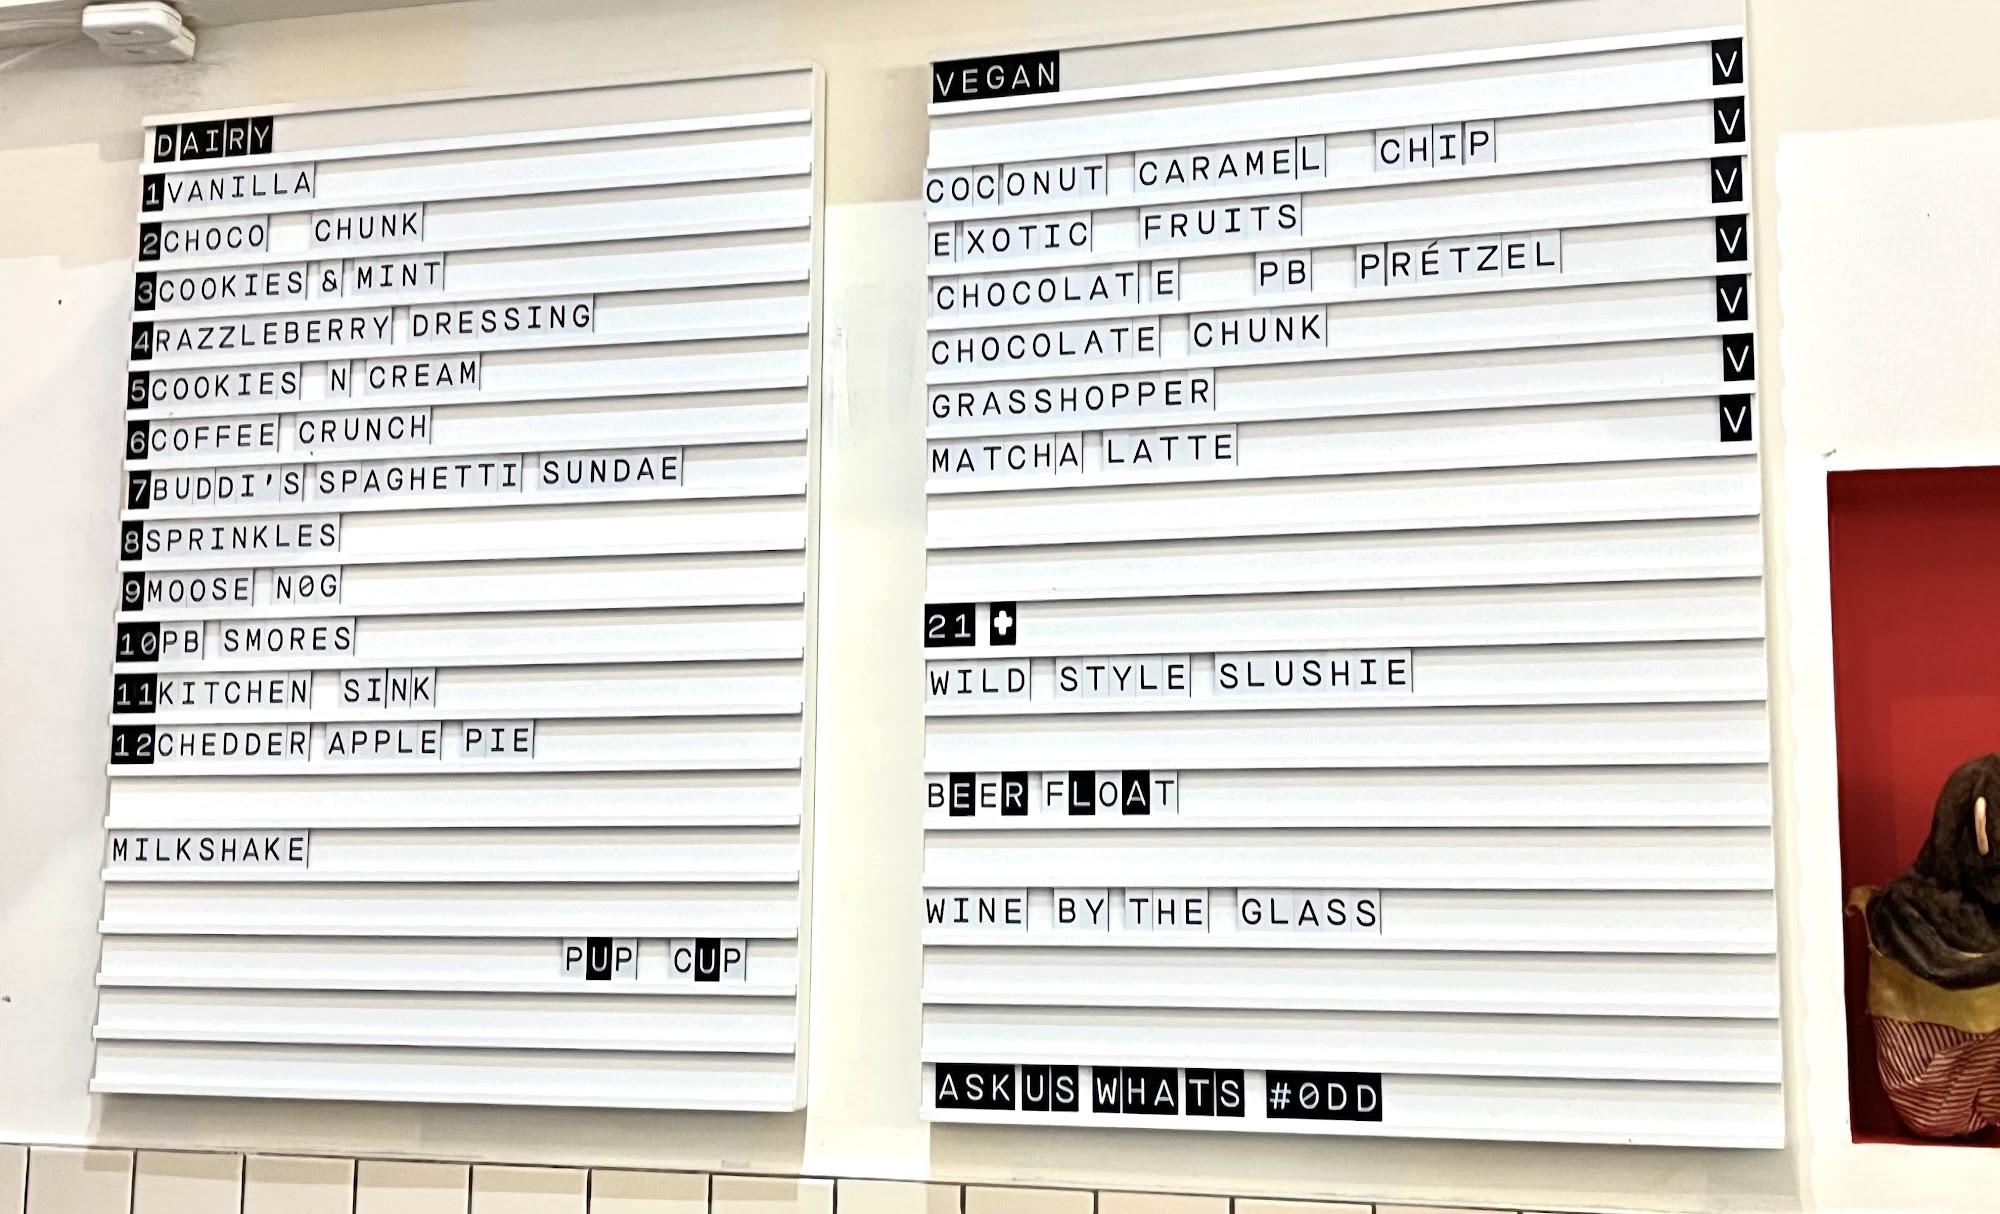 DAIRY
1VANILLA
2CHOCO CHUNK
3COOKIES & MINT
4RAZZLEBERRY DRESSING
5COOKIES N CREAM
6COFFEE CRUNCH
7BUDDI'S SPAGHETTI SUNDAE
8SPRINKLES
9MOOSE N0G
10PB SMORES
11KITCHEN SINK
12CHEDDER APPLE PIE
MILKSHAKE
PUP CUP
VEGAN V
V
COCONUT CARAMEL CHIP V
EXOTIC FRUITS V
CHOCOLATE PB PRÉTZEL V
CHOCOLATE CHUNK V
GRASSHOPPER V
MATCHA LATTE
21 +
WILD STYLE SLUSHIE
BEER FLOAT
WINE BY THE GLASS
ASK US WHATS #0DD